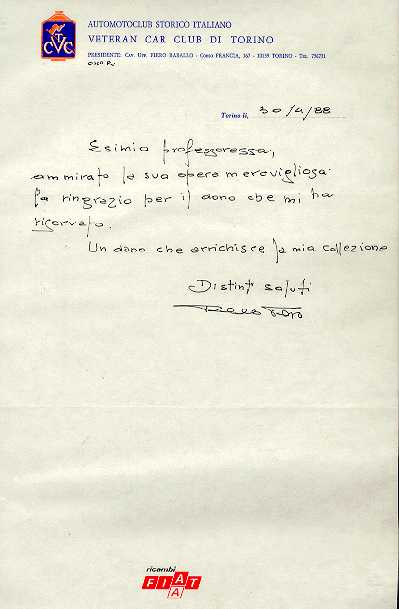 TC
CVC
AUTOMOTOCLUB STORICO ITALIANO
VETERAN CAR CLUB DI TORINO
PRESIDENTE: Cav. Uff. PIERO BABALLO - Corso FRANCIA, 367 - 10139 TORINO - Tel.
Torino lì, 30/4/88
Esimia professoressa,
ammirato la sua opera meravigliosa
la ringrazio per il dono che mi ha
riservato.
Un dono che arrichisce la mia collezione
Distinti saluti
ricambi
FIAT